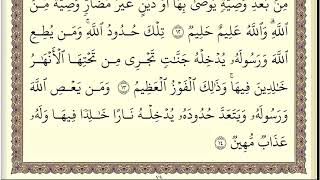 مِنۢ بَعۡدِ وَصِيَّةٖ يُوصَىٰ بِهَآ أَوۡ دَيۡنٍ غَيۡرَ مُضَآرّٖۚ وَصِيَّةٗ مِّنَ
ٱللَّهِۗ وَٱللَّهُ عَلِيمٌ حَلِيمٞ ١٢ تِلۡكَ حُدُودُ ٱللَّهِۚ وَمَن يُطِعِ
ٱللَّهَ وَرَسُولَهُۥ يُدۡخِلۡهُ جَنَّٰتٖ تَجۡرِي مِن تَحۡتِهَا ٱلۡأَنۡهَٰرُ
خَٰلِدِينَ فِيهَاۚ وَذَٰلِكَ ٱلۡفَوۡزُ ٱلۡعَظِيمُ ١٣ وَمَن يَعۡصِ ٱللَّهَ
وَرَسُولَهُۥ وَيَتَعَدَّ حُدُودَهُۥ يُدۡخِلۡهُ نَارًا خَٰلِدٗا فِيهَا وَلَهُۥ
عَذَابٞ مُّهِينٞ ١٤
٧٩